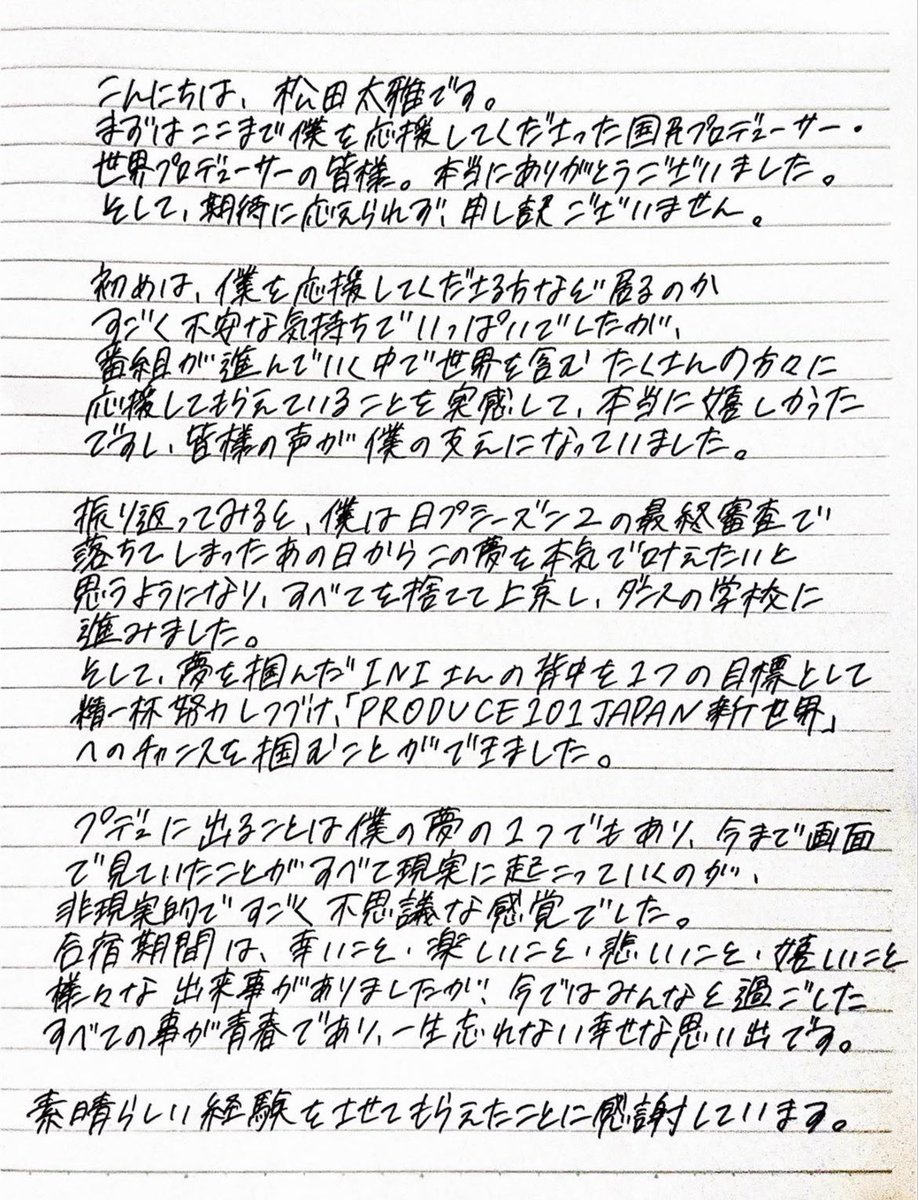 こんにちは、松田太雅です。
まずはここまで僕を応援してくださった国民プロデューサー・
世界プロデューサーの皆様。本当にありがとうございました。
そして、期待に応えられず、申し訳ございません。
初めは、僕を応援してくださる方なぞ居るのか
すごく不安な気持ちでいっぱいでしたが、
番組が進んでいく中で世界を含むたくさんの方々に
応援してもらえていることを実感して、本当に嬉しかった
ですし、皆様の声が僕の支えになっていました。
振り返ってみると、僕は日プシーズン2の最終審査で
落ちてしまったあの日からこの夢を本気で叶えたいと
思うようになり、すべてを捨てて上京し、ダンスの学校に
進みました。
そして、夢を掴んだINIさんの背中を1つの目標として
精一杯努力しつづけ、「PRODUCE101JAPAN新世界」
へのチャンスを掴むことができました。
プデュに出ることは僕の夢の1つでもあり、今まで画面
で見ていたことがすべて現実に起こっていくのが、
非現実的ですごく不思議な感覚でした。
合宿期間は、辛いこと・楽しいこと・悲しいこと・嬉しいこと
様々な出来事がありましたが、今ではみんなと過ごした
すべての事が青春であり、一生忘れない幸せな思い出です。
素晴らしい経験をさせてもらえたことに感謝しています。